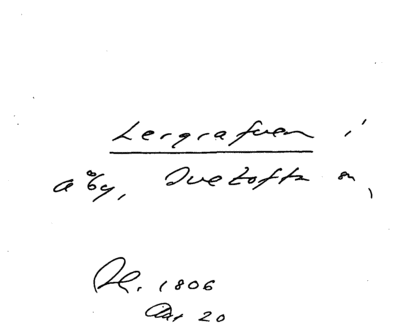 Lergrafven i
åby, Ivetofta sn,
1806
Akt 20